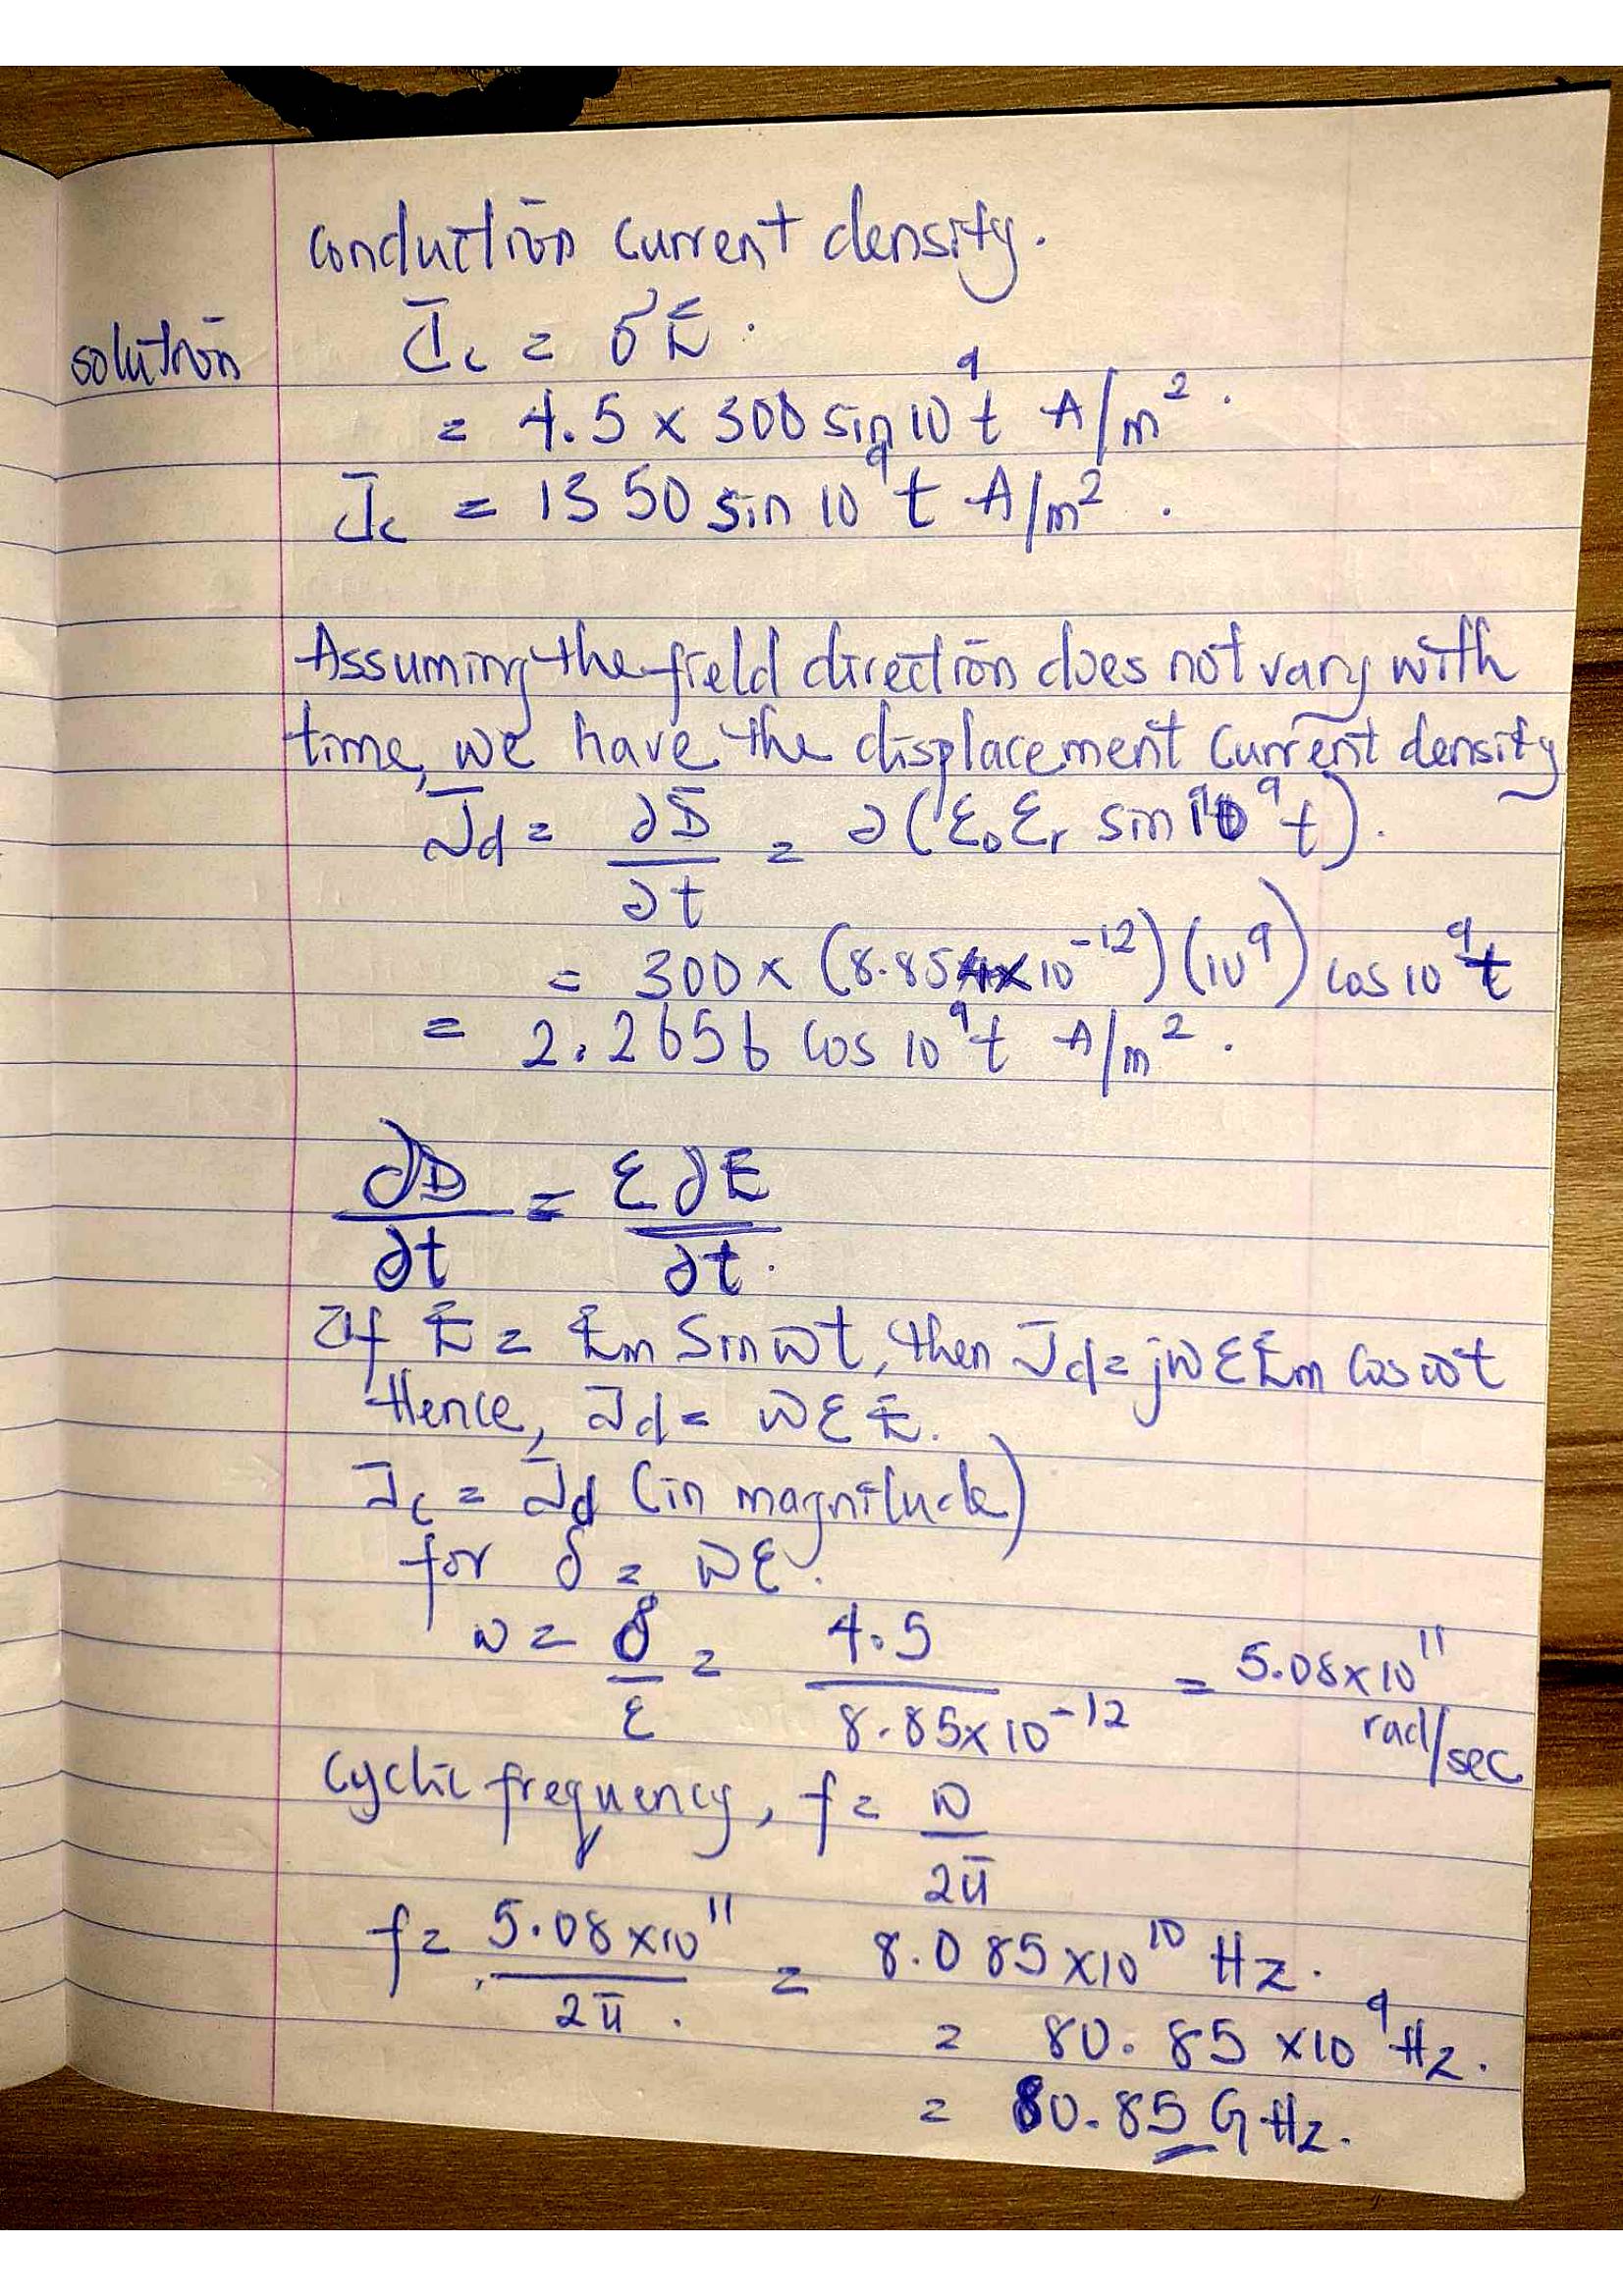 conduction current density.
solution
J̄c = σĒ.
= 4.5 × 300 sin 10⁹t A/m².
J̄c = 1350 sin 10⁹t A/m².
Assuming the field direction does not vary with
time, we have the displacement current density
J̄d = ∂D̄/∂t = ∂(ε₀εr sin 10⁹t).
= 300 × (8.854 × 10⁻¹²)(10⁹) cos 10⁹t
= 2.2656 cos 10⁹t A/m².
∂D/∂t = ε∂E/∂t.
If Ē = Ēm Sin ωt, then J̄d = jωεĒm Cos ωt
Hence, J̄d = ωεĒ.
J̄c = J̄d (in magnitude)
for σ = ωε.
ω = σ/ε = 4.5/8.85×10⁻¹² = 5.08×10¹¹ rad/sec
Cyclic frequency, f = ω/2π
f = 5.08×10¹¹/2π. = 8.085×10¹⁰ Hz.
= 80.85 ×10⁹ Hz.
= 80.85 GHz.